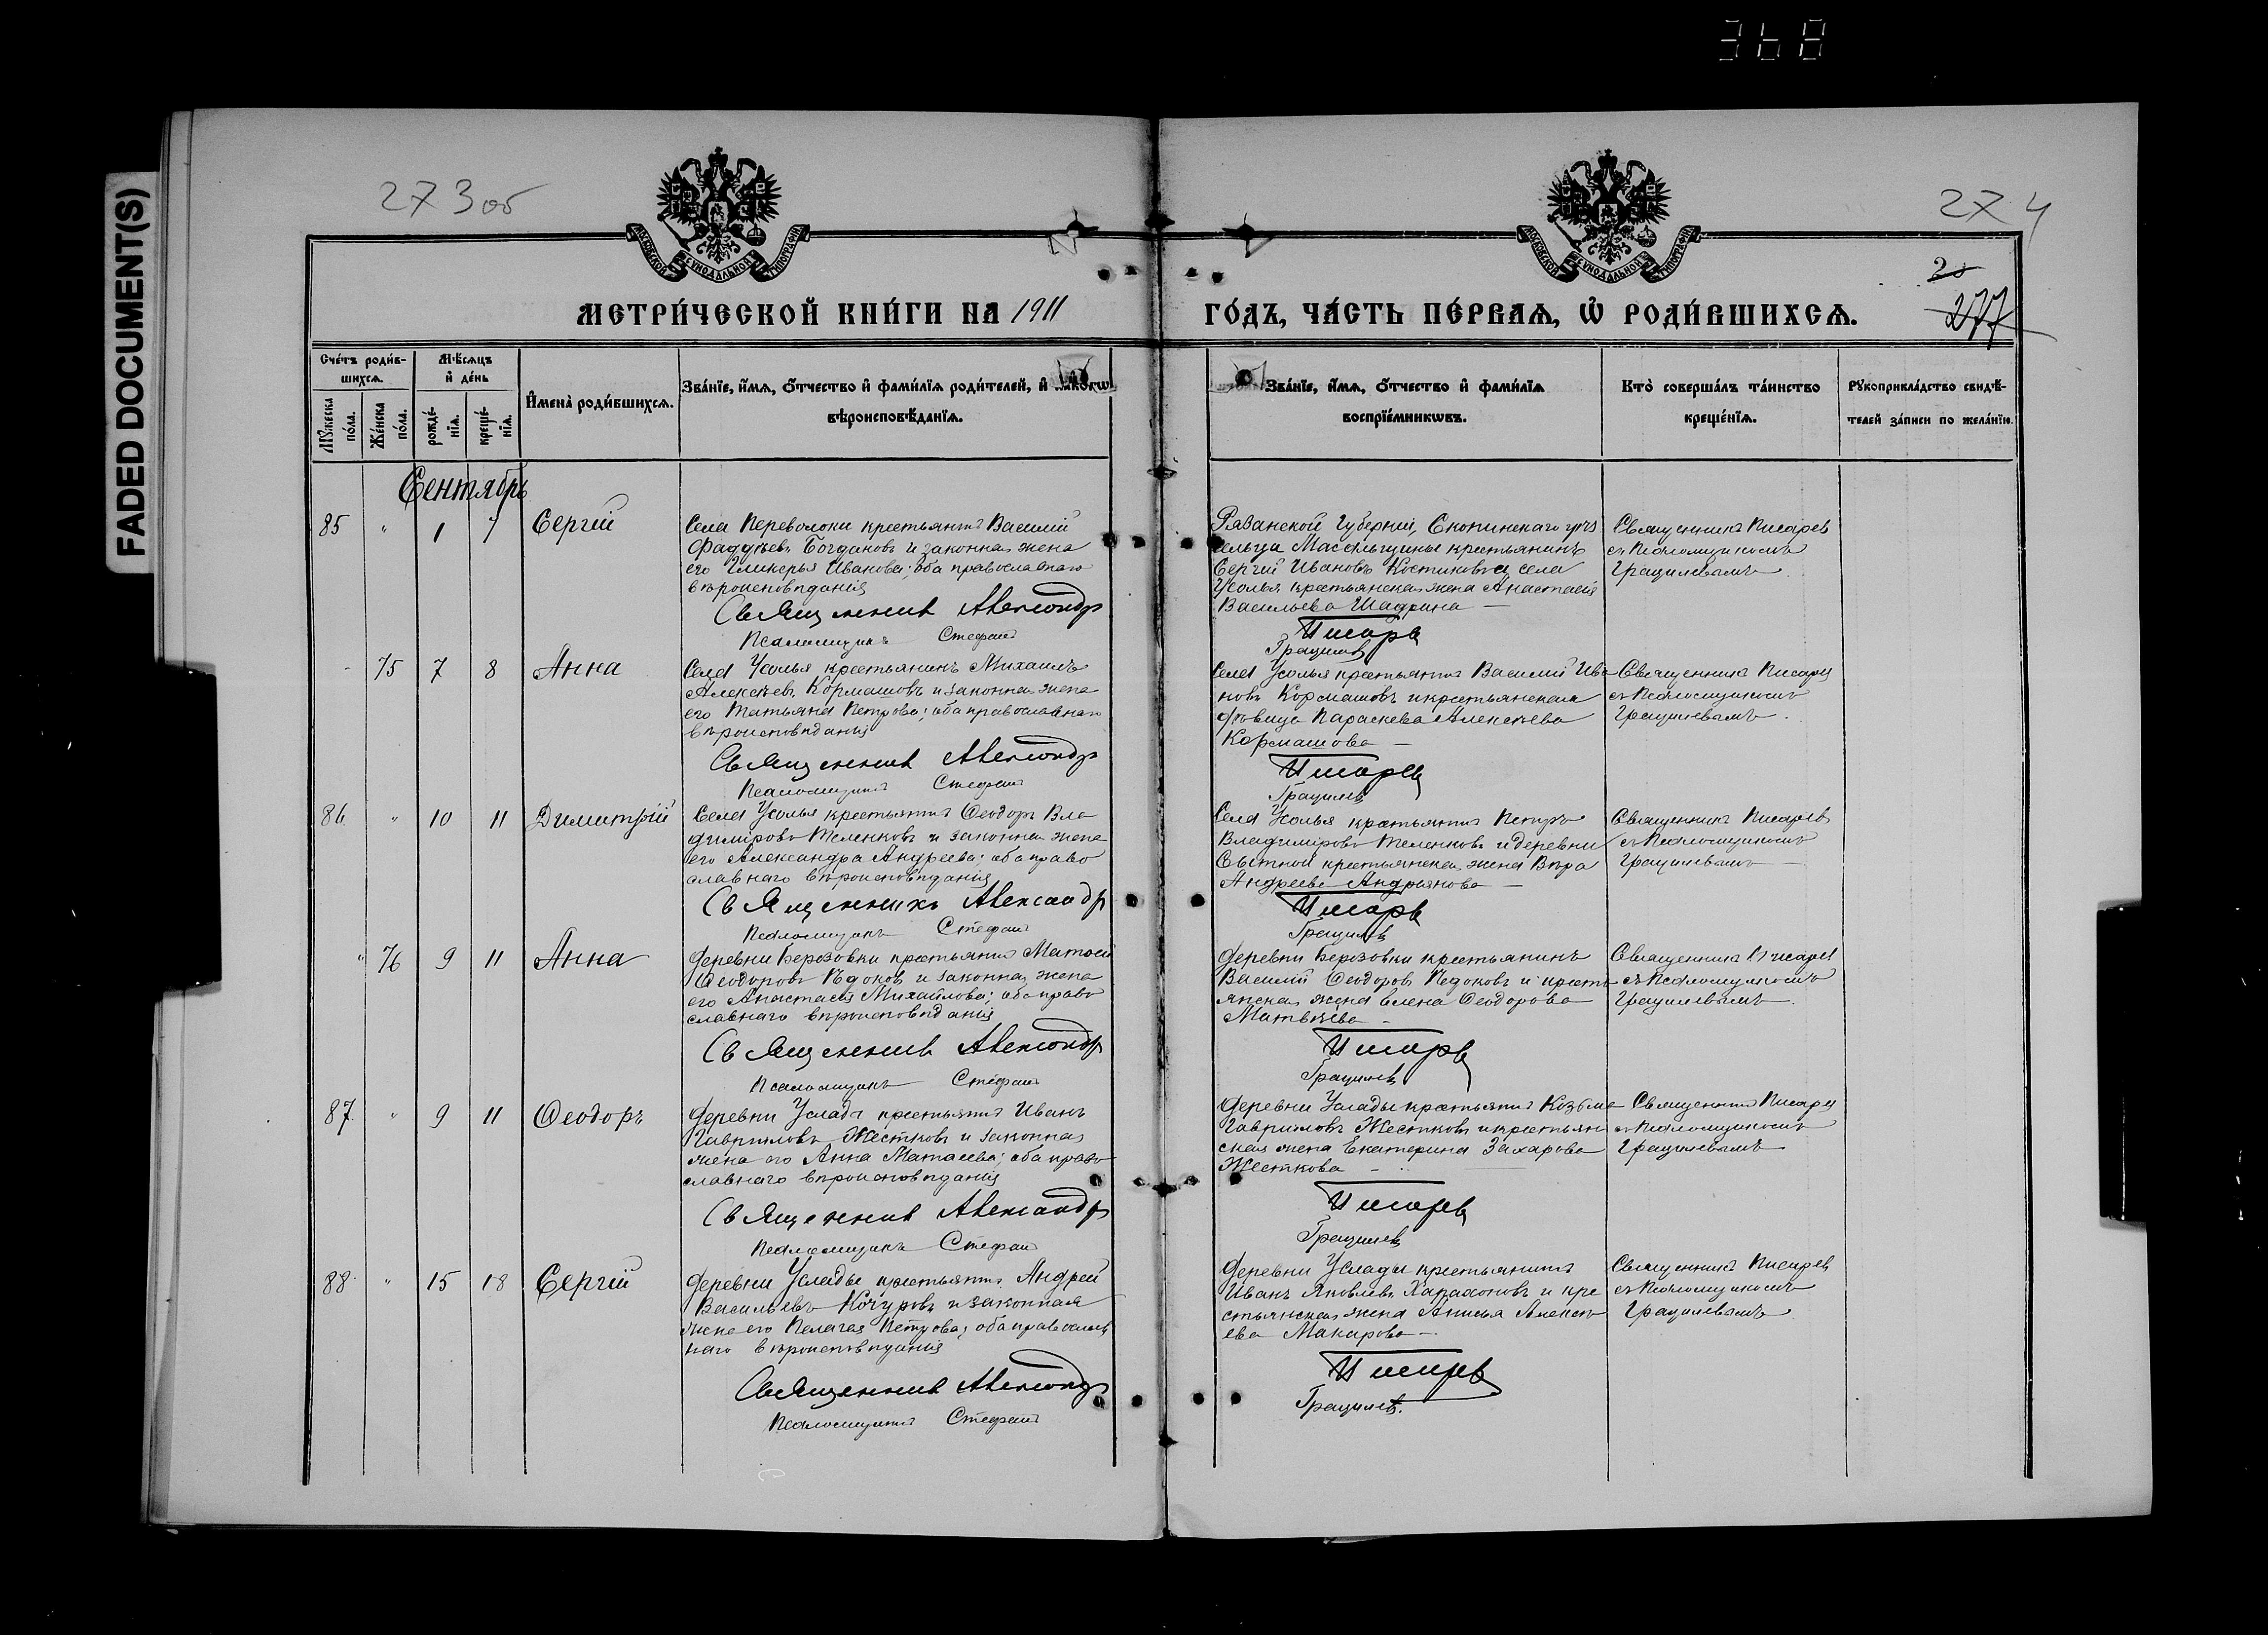 368
FADED DOCUMENT(S)
273об
274
20
277
МОСКОВСКОЙ СѴНОДАЛЬНОЙ ТИПОГРАФІИ
МОСКОВСКОЙ СѴНОДАЛЬНОЙ ТИПОГРАФІИ
МЕТРИ́ЧЕСКОЙ КНИ́ГИ НА 1911
ГО́ДЪ, ЧА́СТЬ ПЕ́РВАѦ, Ѿ РОДИ́ВШИХСѦ.
Сче́тъ роди́в-
шихсѧ.
Мꙋ́жеска по́ла.
Же́нска по́ла.
Мѣ́сѧцъ
и҆ де́нь
рожде́-
нїѧ.
креще́-
нїѧ.
И҆мена̀ роди́вшихсѧ.
Зва́нїе, и҆́мѧ, ѻ҆́тчество и҆ фами́лїѧ роди́телей, и҆
вѣроисповѣ́данїѧ.
Зва́нїе, и҆́мѧ, ѻ҆́тчество и҆ фами́лїѧ
воспрїе́мникѡвъ.
Кто̀ соверша́лъ та́инство
креще́нїѧ.
Рꙋкоприкла́дство свидѣ́-
телей за́писи по жела́нїю.
Сентябрь
85 " 1 7 Сергій
Села Переволоки крестьянинъ Василий
Фаддѣевъ Богдановъ и законная жена
его Гликерья Иванова; оба православнаго
вѣроисповѣданія
Священникъ Александръ
Псаломщикъ Стефанъ
Рязанской Губерніи, Скопинскаго
сельца крестьянинъ
Сергій Ивановъ Костиковъ и села
Усолья крестьянская жена Анастасія
Васильева Шадрина —
Писаревъ
Грацилевъ
Священникъ Писаревъ
съ Псаломщикомъ
Грацилевымъ
- 75 7 8 Анна
Села Усолья крестьянинъ Михаилъ
Алексѣевъ Кормашовъ и законная жена
его Татьяна Петрова; оба православнаго
вѣроисповѣданія
Священникъ Александръ
Псаломщикъ Стефанъ
Села Усолья крестьянинъ Василій Ива
новъ Кормашовъ и крестьянская
дѣвица Параскева Алексѣева
Кормашова —
Писаревъ
Грацилевъ
Священникъ Писаревъ
съ Псаломщикомъ
Грацилевымъ.
86 " 10 11 Димитрій
Села Усолья крестьянинъ Ѳеодоръ Вла
димірова Теленковъ и законная жена
его Александра Андреева; оба право
славнаго вѣроисповѣданія
Священникъ Александръ
Псаломщикъ Стефанъ
Села Усолья крестьянинъ Петръ
Владиміровъ Теленковъ и деревни
крестьянская жена Вѣра
Андреева Андрьянова —
Писаревъ
Грацилевъ
Священникъ Писаревъ
съ Псаломщикомъ
Грацилевымъ
" 76 9 11 Анна
Деревни Березовки крестьянинъ Матѳей
Ѳеодоровъ Ѣдоковъ и законная жена
его Анастасія Михайлова; оба право
славнаго вѣроисповѣданія
Священникъ Александръ
Псаломщикъ Стефанъ
Деревни Березовки крестьянинъ
Василій Ѳеодоровъ Ѣдоковъ и кресть
янская жена Елена Ѳеодорова
Матвѣева —
Писаревъ
Грацилевъ
Священникъ Писаревъ
съ Псаломщикомъ
Грацилевымъ.
87 " 9 11 Ѳеодоръ
Деревни Услады крестьянинъ Иванъ
Гавриловъ Жестковъ и законная
жена его Анна Матѳеева; оба право
славнаго вѣроисповѣданія
Священникъ Александръ
Псаломщикъ Стефанъ
Деревни Услады крестьянинъ Козьма
Гавриловъ Жестковъ и крестьян
ская жена Екатерина Захарова
Жесткова —
Писаревъ
Грацилевъ
Священникъ Писаревъ
съ Псаломщикомъ
Грацилевымъ
88 " 15 18 Сергій
Деревни Услады крестьянинъ Андрей
Васильевъ Кочуровъ и законная
жена его Пелагея Петрова; оба православ
наго вѣроисповѣданія
Священникъ Александръ
Псаломщикъ Стефанъ
Деревни Услады крестьянинъ
Иванъ Яковлевъ и кре
стьянская жена Анисья Алексѣ
ева Макарова —
Писаревъ
Грацилевъ.
Священникъ Писаревъ
съ Псаломщикомъ
Грацилевымъ